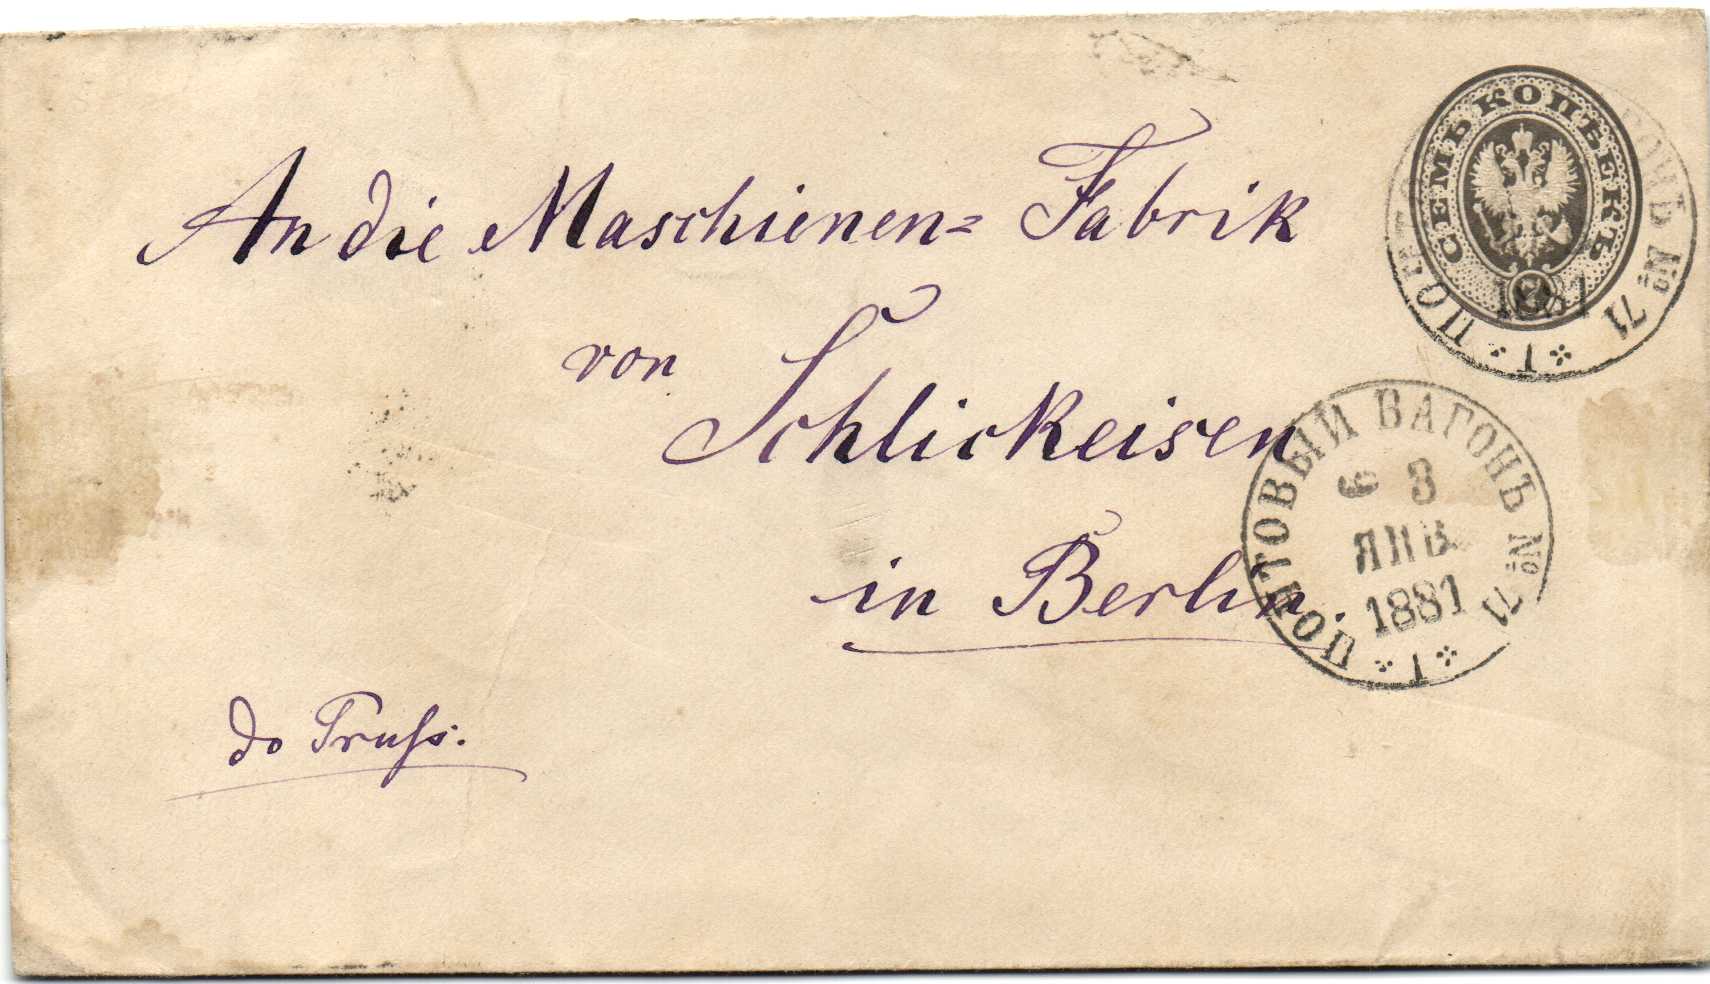 СЕМЬ КОПѢЕКЪ
7
1881
№ 71
1
An die Maschienen= Fabrik
von Schlickeisen
in Berlin.
ПОЧТОВЫЙ ВАГОНЪ № 71
3
ЯНВ
1881
1
do Pruſs.